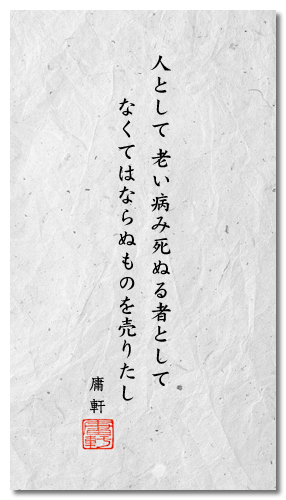 人として 老い病み死ぬる者として
なくてはならぬものを売りたし
庸軒
庸軒